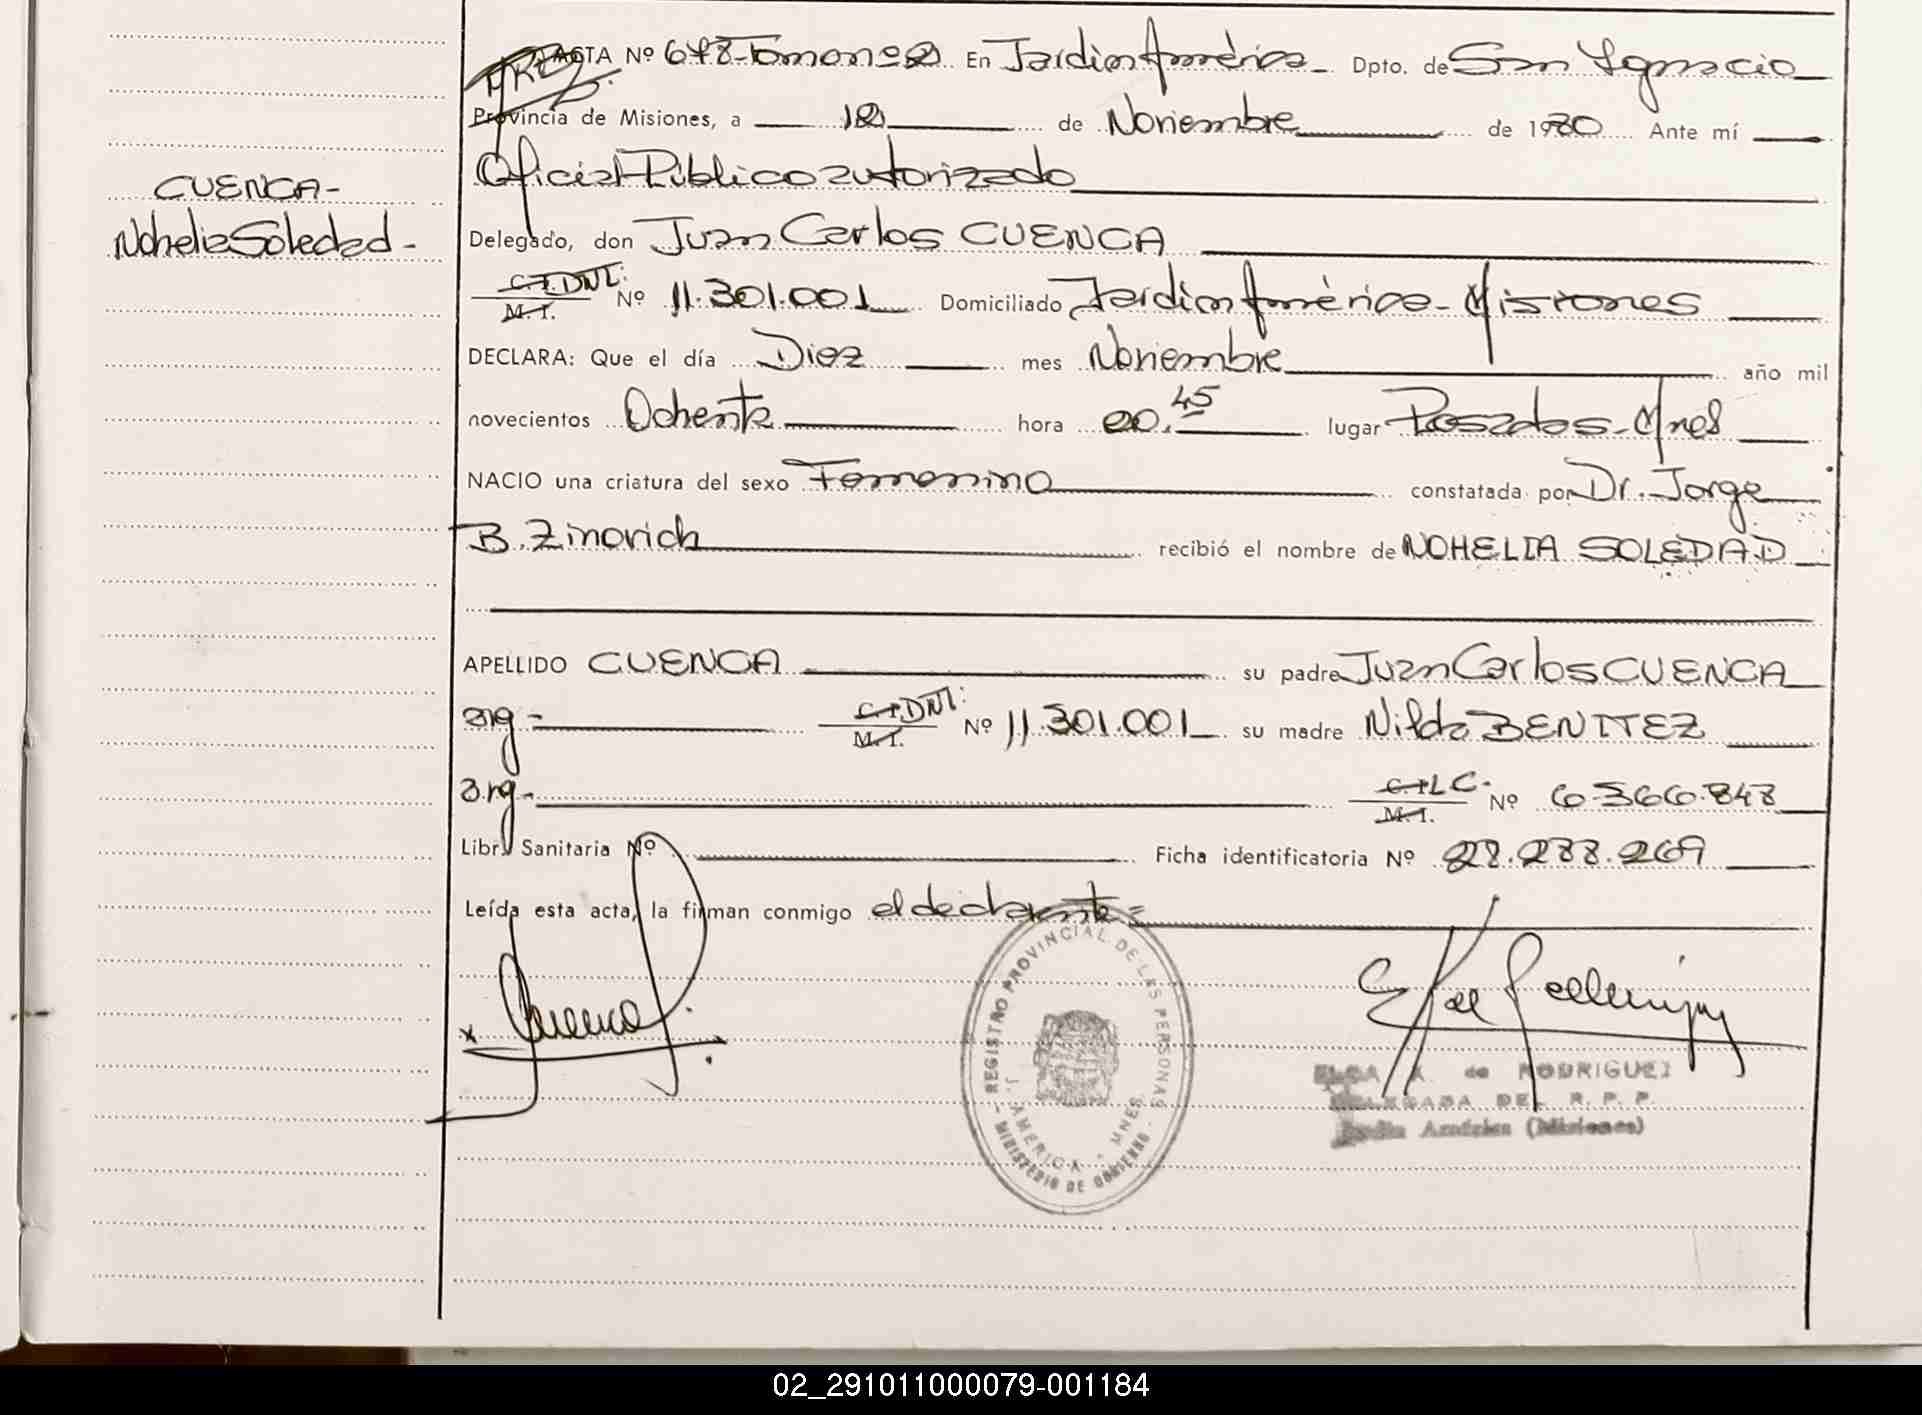 CUENCA-
Nohelia Soledad-
ACTA Nº 678-Tomo nº 2 En Jardin América Dpto. de San Ignacio
Provincia de Misiones, a 12 de Noviembre de 1980 Ante mí
Oficial Público autorizado
Delegado, don Juan Carlos CUENCA
C.I. DNI: M.I. Nº 11.301.001 Domiciliado Jardin América- Misiones
DECLARA: Que el día Diez mes Noviembre año mil
novecientos Ochenta hora 20.45 lugar Posadas-Mnes
NACIO una criatura del sexo Femenino constatada por Dr. Jorge
B. Zinovich recibió el nombre de NOHELIA SOLEDAD
APELLIDO CUENCA su padre Juan Carlos CUENCA
arg- C.I. DNI: M.I. Nº 11.301.001 su madre Nilda BENITEZ
arg- C.I. L.C. M.I. Nº 6.366.848
Libr. Sanitaria Nº Ficha identificatoria Nº 28.288.269
Leída esta acta, la firman conmigo el declarante=
x Cuenca
REGISTRO PROVINCIAL DE LAS PERSONAS
J. AMERICA - MNES
MINISTERIO DE GOBIERNO
ELSA K. de RODRIGUEZ
DELEGADA DEL R. P. P.
Jardín América (Misiones)
02_291011000079-001184